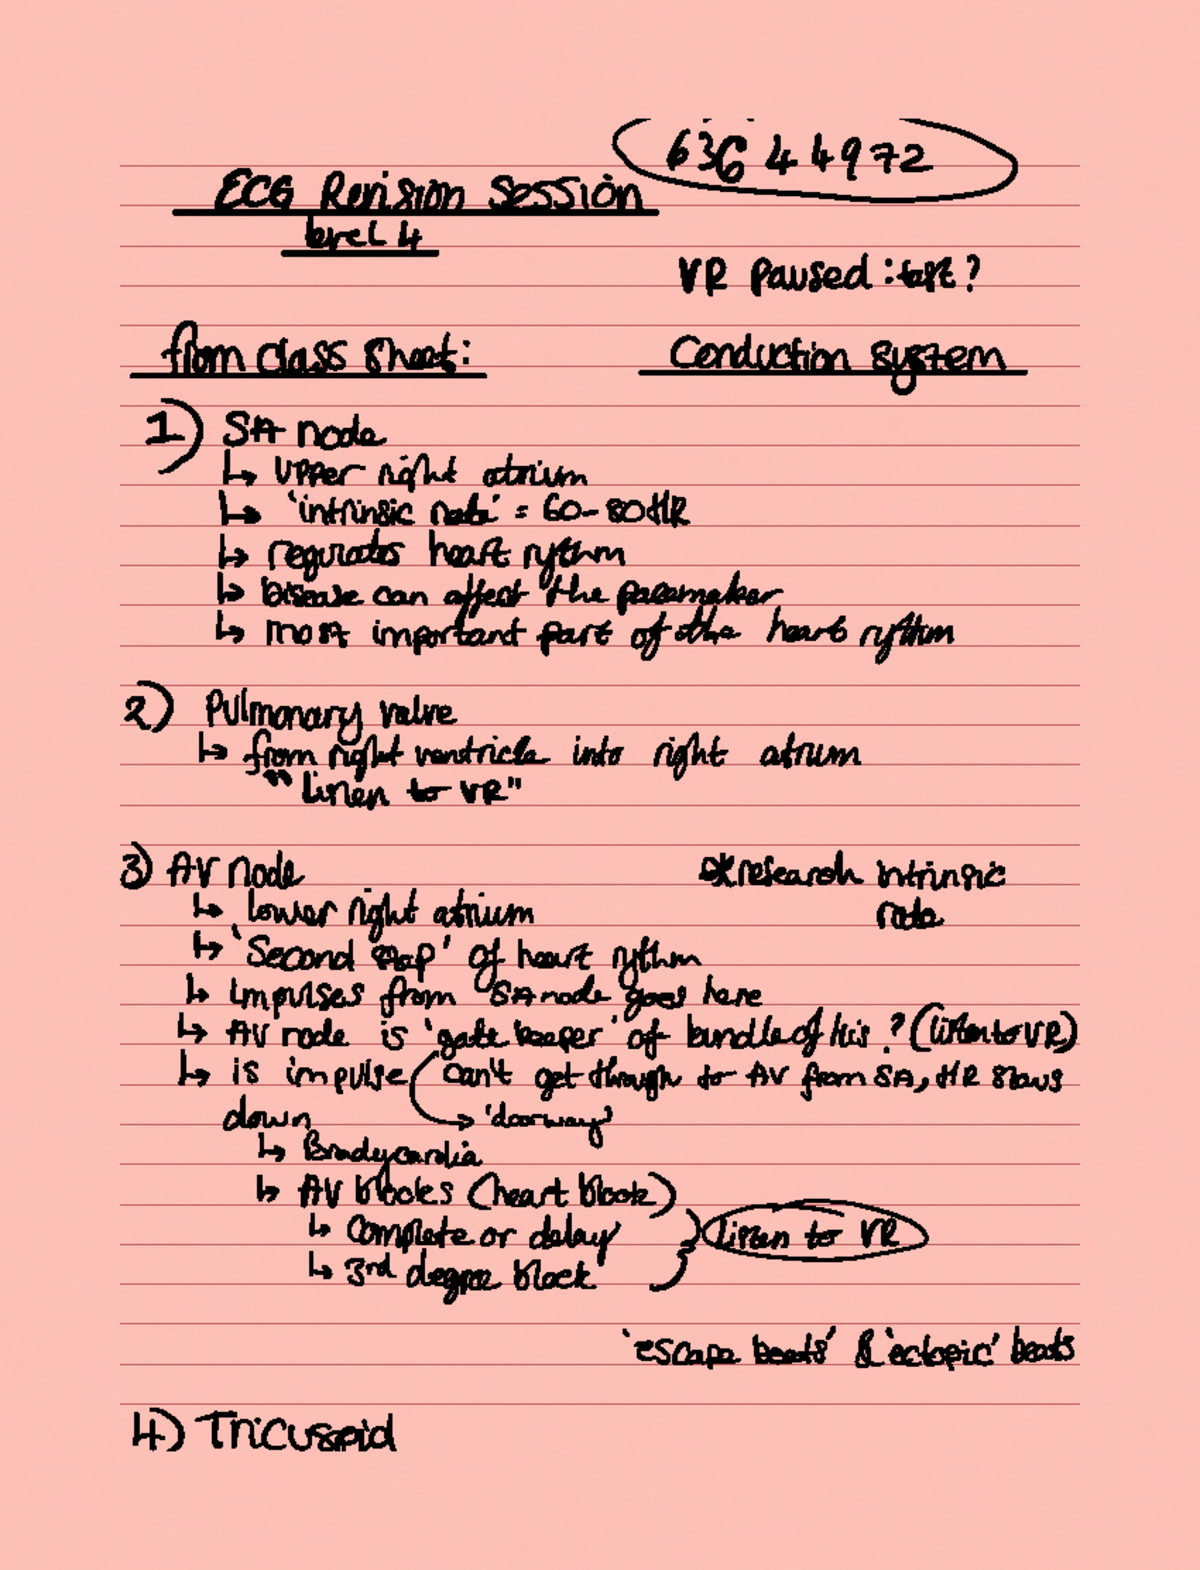 636 44972
ECG Revision Session
level 4
VR Paused : last?
from class sheet:
Conduction system
1) SA node
↳ Upper right atrium
↳ 'intrinsic rate' = 60-80HR
↳ regulates heart rythm
↳ Disease can affect the pacemaker
↳ most important part of the heart rythm
2) Pulmonary valve
↳ from right ventricle into right atrium
"listen to VR"
3) AV node
* research intrinsic
rate
↳ lower right atrium
↳ 'Second step' of heart rythm
↳ Impulses from SA node goes here
↳ AV node is 'gate keeper' of bundle of His? (listen to VR)
↳ is impulse can't get through to AV from SA, HR slows
down
→ 'doorway'
↳ Bradycardia
↳ AV blocks (heart block)
↳ complete or delay
↳ 3rd degree block
listen to VR
'escape beats' & 'ectopic' beats
4) Tricuspid